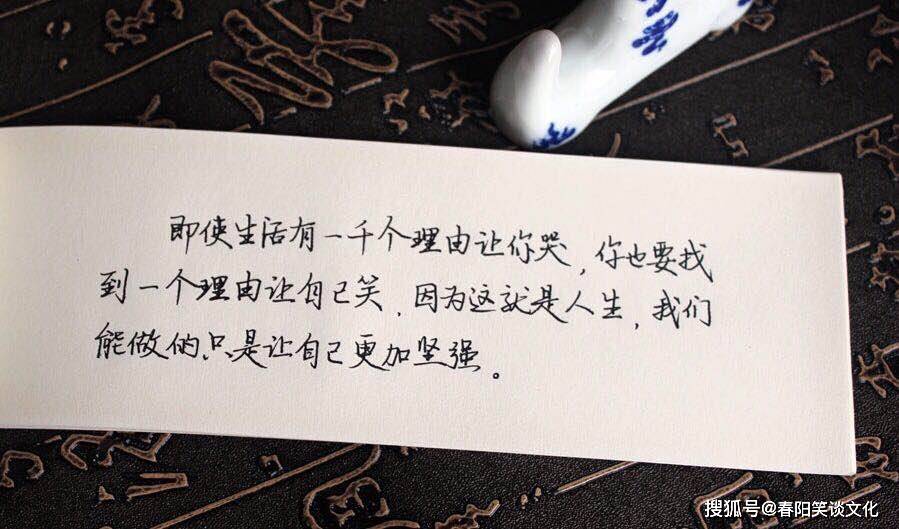 即使生活有一千个理由让你哭,你也要找
到一个理由让自己笑,因为这就是人生,我们
能做的,只是让自己更加坚强。
搜狐号@春阳笑谈文化